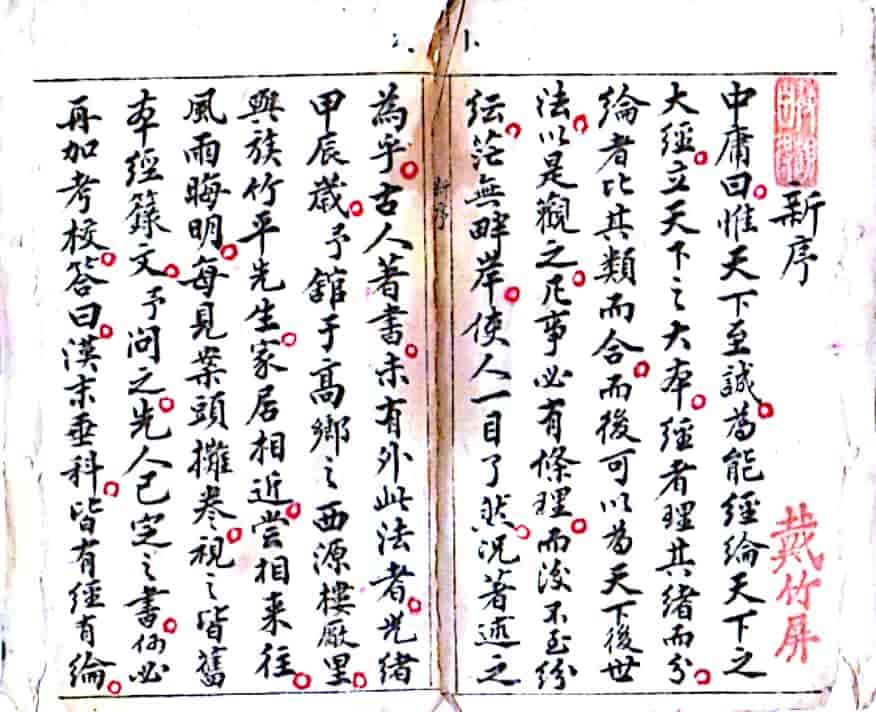 新序
戴竹屏
中庸曰。惟天下至誠。為能經綸天下之
大經。立天下之大本。經者理其緒而分。
綸者比其類而合。而後可以為天下後世
法。以是觀之。凡事必有條理。而後不至紛
紜。茫無畔岸。使人一目了然。况著述之
新序
為乎。古人著書。未有外此法者。光緒
甲辰歲。予館于高鄉之西源樓厰里。
與族竹平先生。家居相近。嘗相来往。
風雨晦明。每見案頭攤卷。視之皆舊
本經籙文。予問之。先人已定之書。何必
再加考校。答曰。漢末垂科。皆有經有綸。